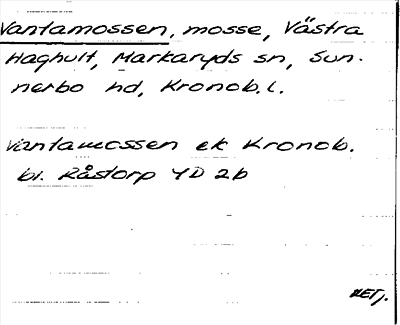 Vantamossen, mosse, Västra
Haghult, Markaryds sn, Sun-
nerbo hd, Kronob. l.
Vantamossen ek Kronob.
bl. Råstorp 4D 2b